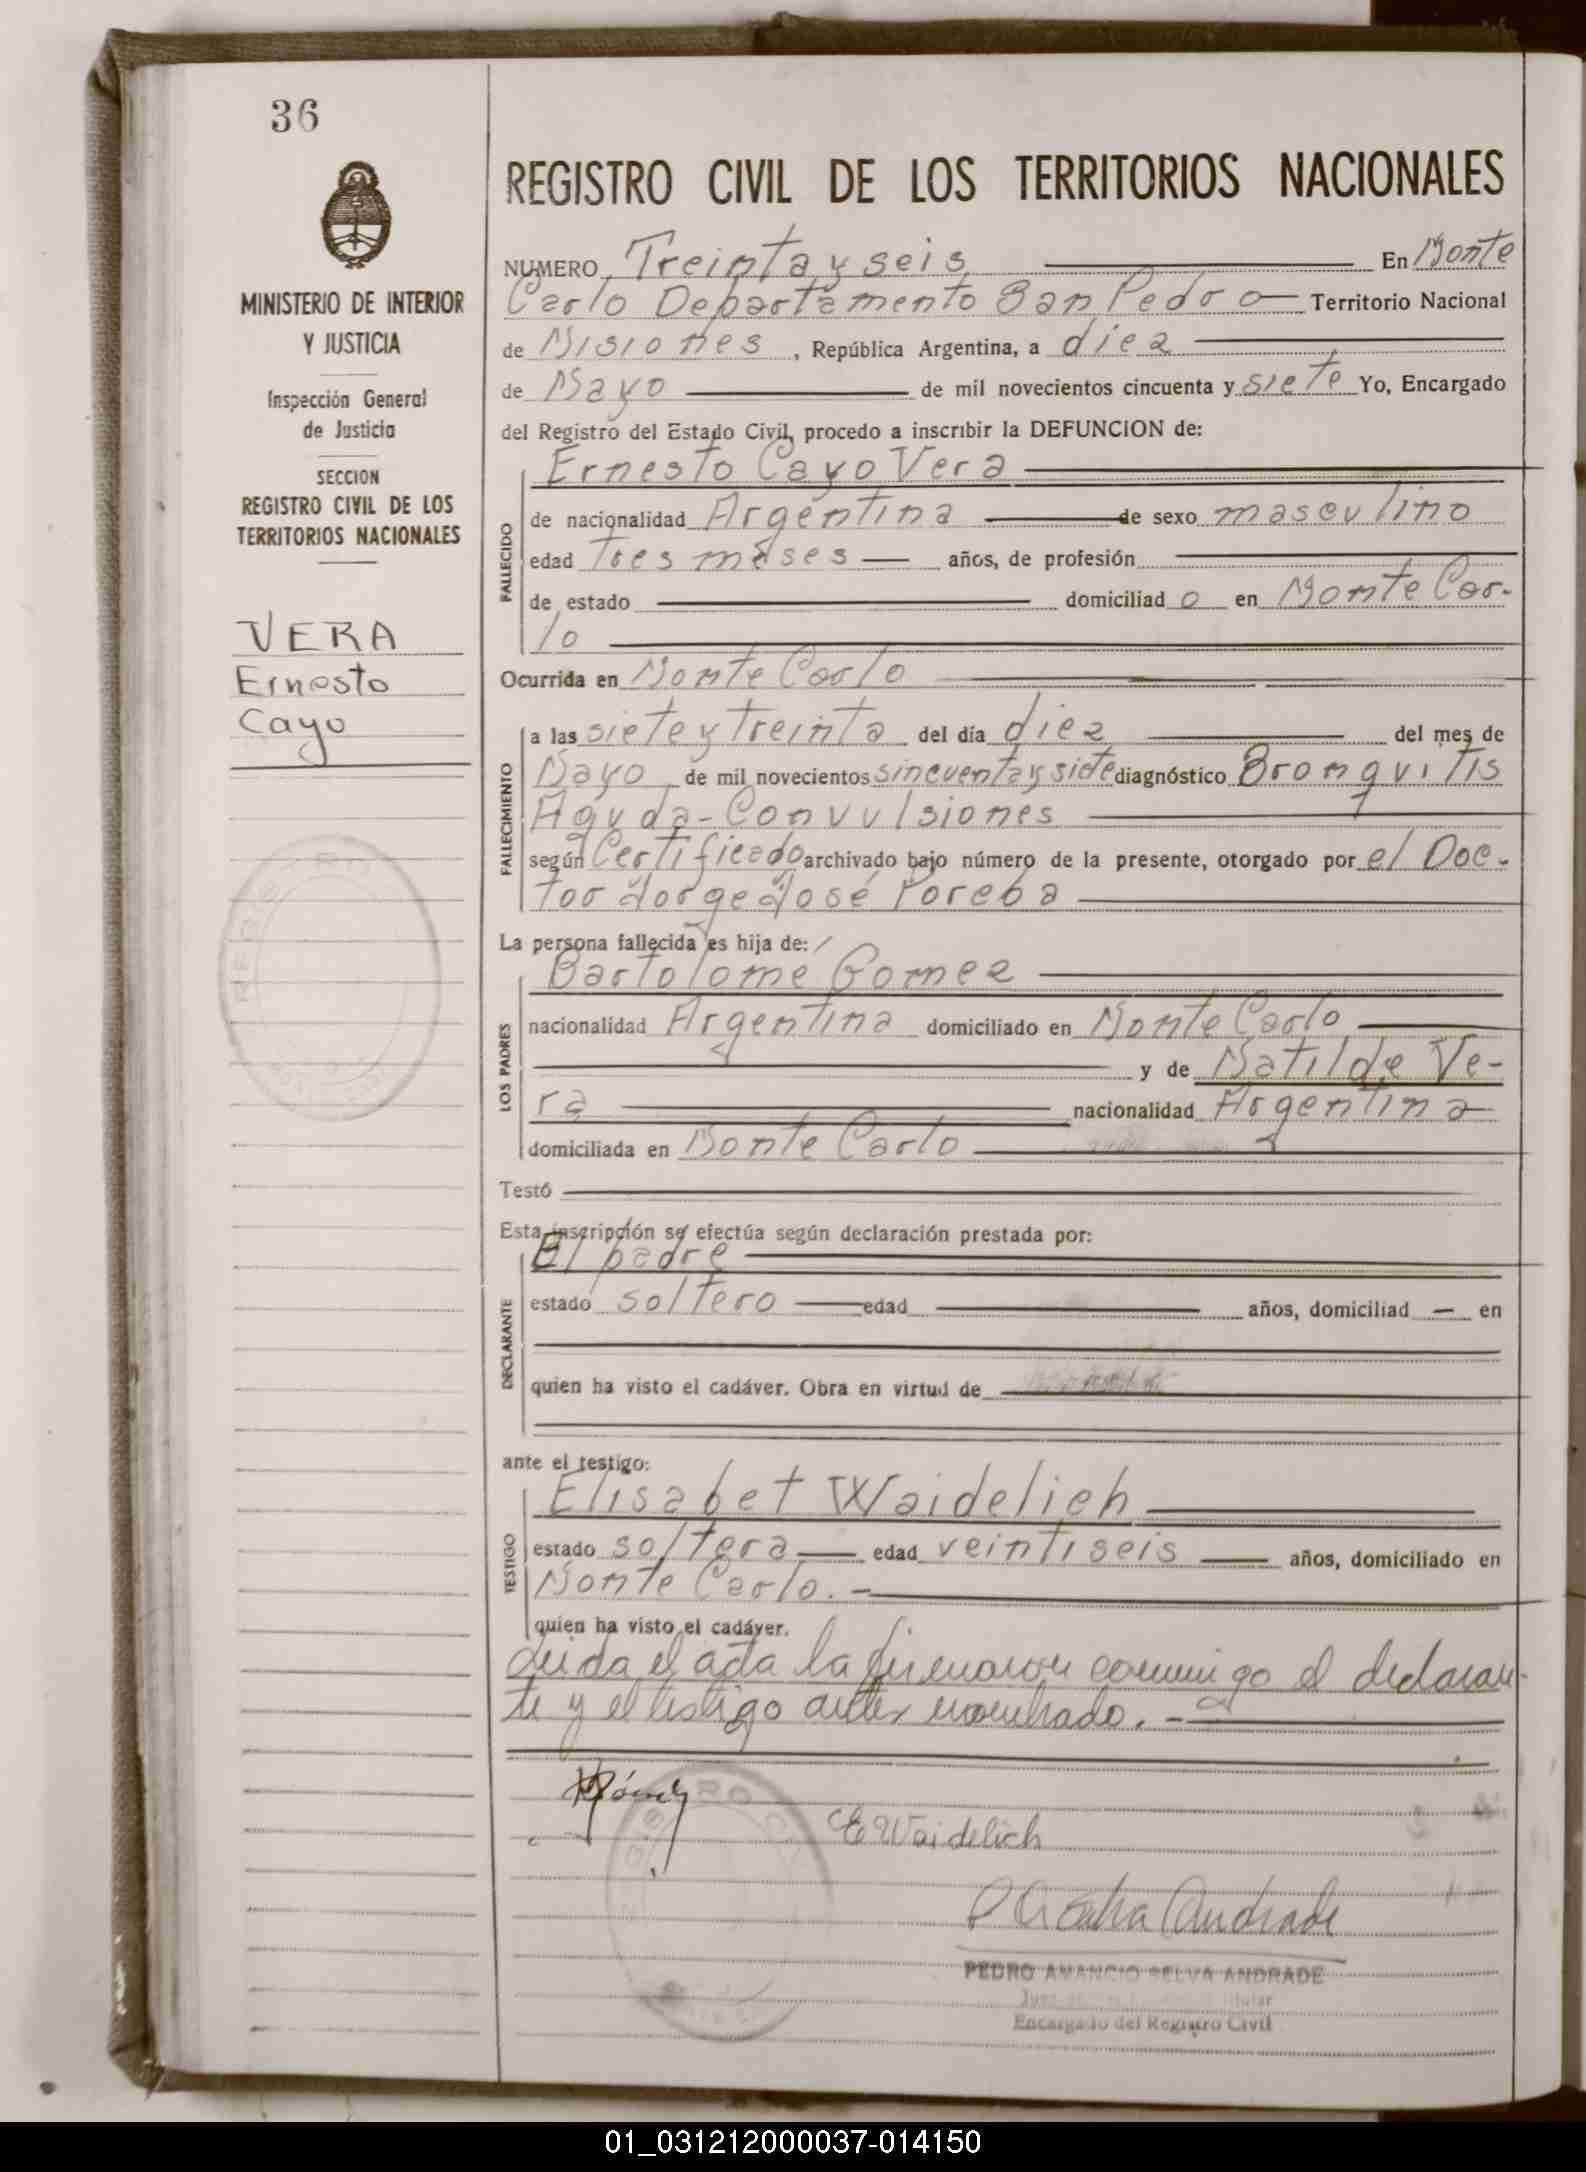 36
MINISTERIO DE INTERIOR
Y JUSTICIA
Inspección General
de Justicia
SECCION
REGISTRO CIVIL DE LOS
TERRITORIOS NACIONALES
VERA
Ernesto
Cayo
REGISTRO CIVIL DE LOS TERRITORIOS NACIONALES
NUMERO Treinta y seis En Monte
Carlo Departamento San Pedro Territorio Nacional
de Misiones, República Argentina, a diez
de Mayo de mil novecientos cincuenta y siete Yo, Encargado
del Registro del Estado Civil, procedo a inscribir la DEFUNCION de:
Ernesto Cayo Vera
FALLECIDO
de nacionalidad Argentina de sexo masculino
edad tres meses años, de profesión
de estado domiciliad o en Monte Car-
lo
Ocurrida en Monte Carlo
FALLECIMIENTO
a las siete y treinta del día diez del mes de
Mayo de mil novecientos sincuenta y siete diagnóstico Bronquitis
Aguda-Convulsiones
según Certificado archivado bajo número de la presente, otorgado por el Doc-
tor Jorge José Poreba
La persona fallecida es hija de:
LOS PADRES
Bartolome Gomez
nacionalidad Argentina domiciliado en Monte Carlo
y de Matilde Ve-
ra nacionalidad Argentina
domiciliada en Monte Carlo
Testó
Esta inscripción se efectúa según declaración prestada por:
DECLARANTE
El padre
estado soltero edad años, domiciliad — en
quien ha visto el cadáver. Obra en virtud de
ante el testigo:
TESTIGO
Elisabet Waidelich
estado soltera edad veintiseis años, domiciliado en
Monte Carlo.-
quien ha visto el cadáver.
Leida el acta la firmaron conmigo el declaran-
te y el testigo antes nombrado.-
E Waidelich
Selva Andrade
PEDRO AMANCIO SELVA ANDRADE
Encargado del Registro Civil
01_031212000037-014150